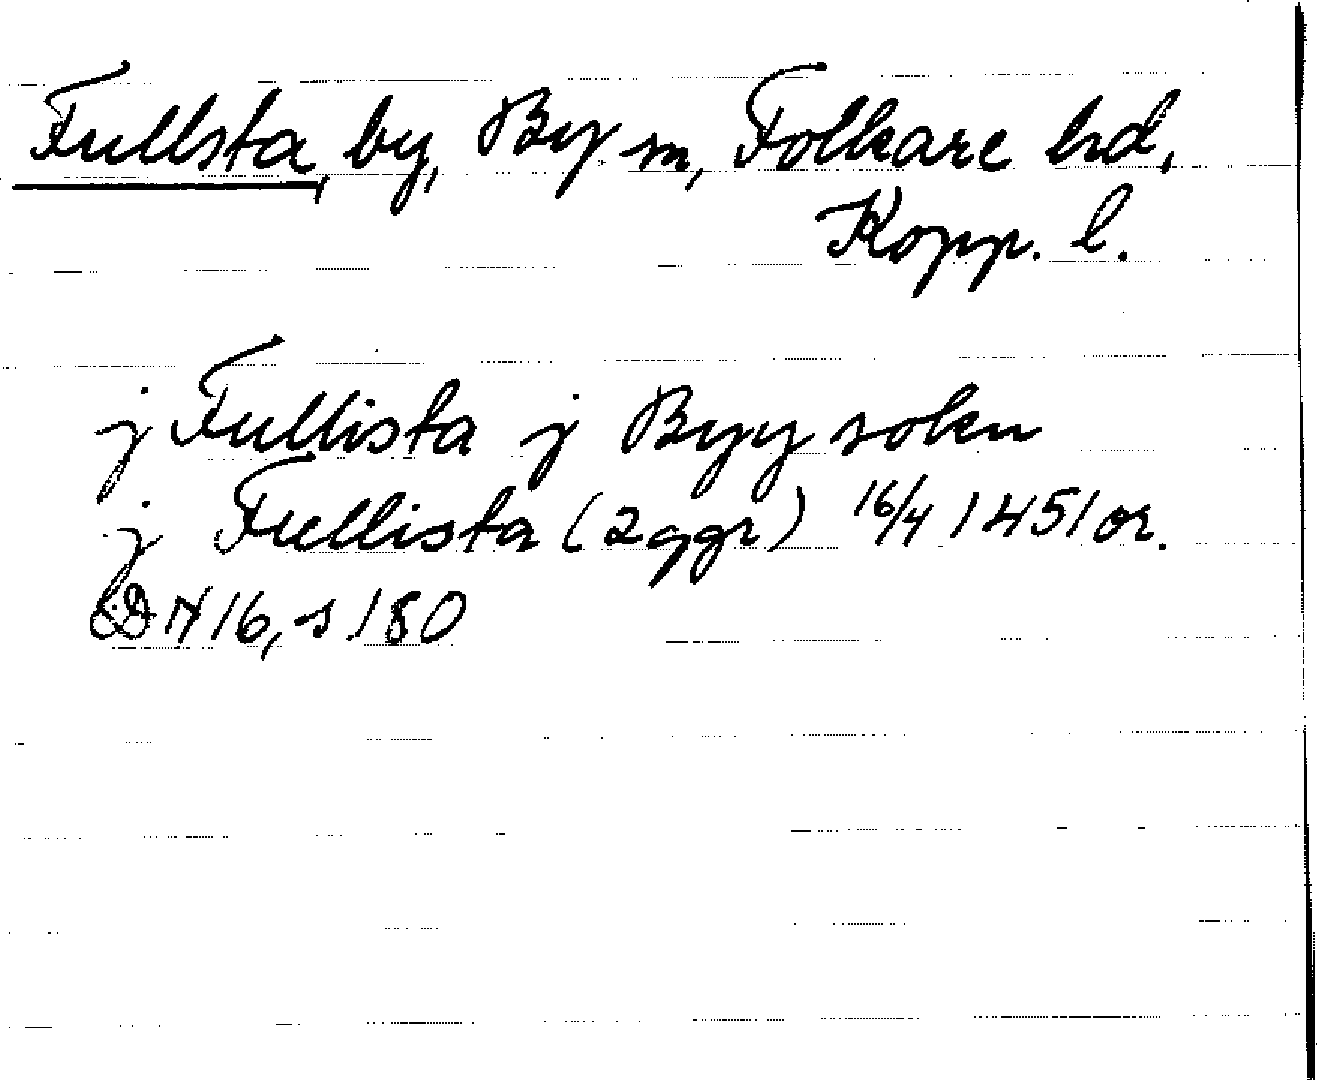 Fullsta, by, By sn, Folkare hd,
Kopp. l.
j Fullista j Byy sokn
j Fullista (2 ggr) 16/4 1451 or.
SD N 16, s 180